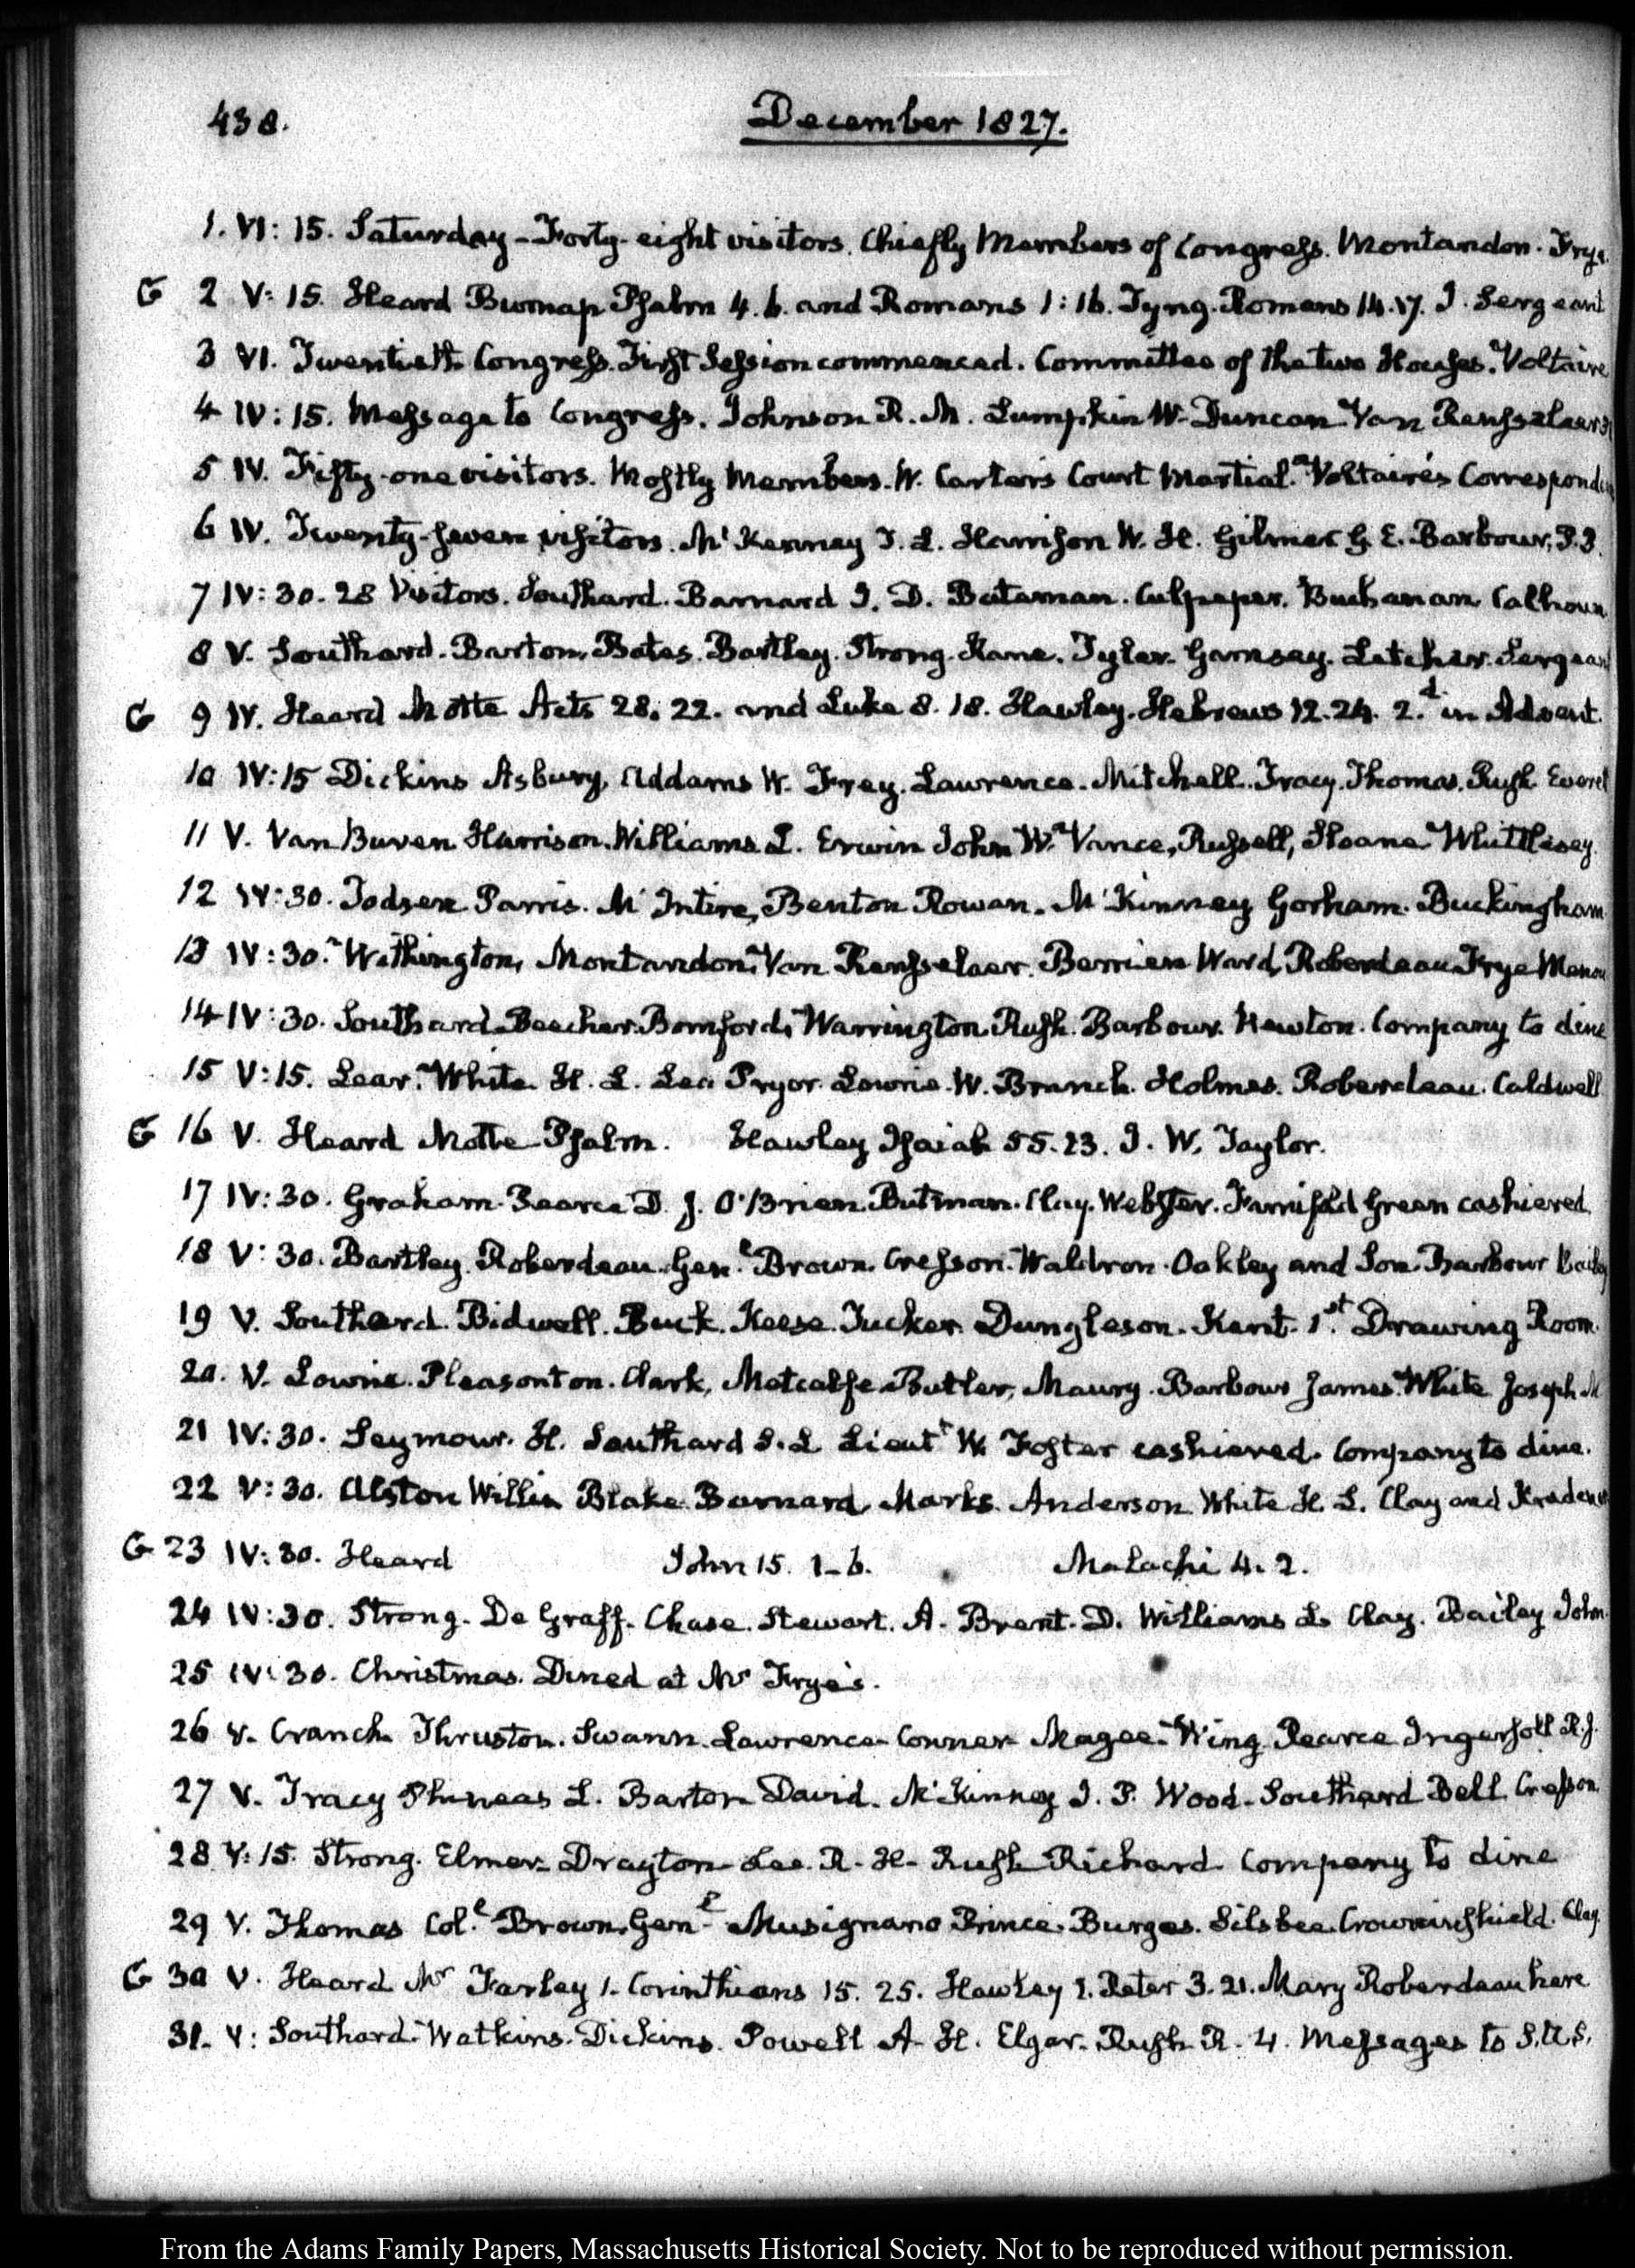 438.
December 1827.
1. VI: 15. Saturday - Forty-eight visitors. Chiefly Members of Congress. Montandon. Frye.
G 2 V: 15. Heard Burnap Psalm 4. 6. and Romans 1: 16. Tyng. Romans 14. 17. J. Sergeant
3 VI. Twentieth Congress. First Session commenced. Committee of the two Houses. Voltaire
4 IV: 15. Message to Congress. Johnson R. M. Lumpkin W. Duncan Van Rensselaer
5 IV. Fifty-one visitors. Mostly Members. W. Carter's Court Martial. Voltaire's Correspond
6 IV. Twenty-seven visitors. Mc Kenney T. L. Harrison W. H. Gilmer G. E. Barbour, P. P.
7 IV: 30. 28 Visitors. Southard. Barnard I. D. Bateman. Culpeper. Buchanan Calhoun
8 V. Southard. Barton, Bates. Bartley. Strong. Kane. Tyler. Garnsey. Letcher. Sergeant
G 9 IV. Heard Motte Acts 28. 22. and Luke 8. 18. Hawley. Hebrews 12. 24. 2.d in Advent.
10 IV: 15 Dickins Asbury, Addams W. Frey. Lawrence. Mitchell. Tracy. Thomas. Rush Everett
11 V. Van Buren Harrison. Williams L. Erwin John W. Vance, Russell, Sloane Whittlesey.
12 IV: 30. Todsen Parris. Mc Intire, Benton Rowan. Mc Kinney Gorham. Buckingham
13 IV: 30. Withington, Montandon, Van Rensselaer. Berrien Ward, Roberdeau Frye
14 IV: 30. Southard Beecher. Bomford, Warrington Rush. Barbour. Newton. Company to dine
15 V: 15. Lear. White H. L. Lea Pryor Lowrie W. Branch. Holmes. Roberdeau. Caldwell
G 16 V. Heard Motte Psalm. Hawley Isaiah 55. 23. J. W. Taylor.
17 IV: 30. Graham. Pearce D. J. O'Brien. Butman. Clay. Webster. Farnifold Green cashiered.
18 V: 30. Bartley. Roberdeau. Genl Brown. Cresson. Waldron. Oakley and Son. Barbour
19 V. Southard. Bidwell. Buck. Keese. Tucker. Dungleson. Kent. 1.st Drawing Room.
20. V. Lowrie. Pleasonton. Clark, Metcalfe. Butler, Maury. Barbour James. White Joseph M
21 IV: 30. Seymour. H. Southard S. L Lieutt W. Foster cashiered. Company to dine.
22 V: 30. Alston Willis Blake. Barnard Marks. Anderson White H. L. Clay and Krudener
G 23 IV: 30. Heard John 15. 1-6. Malachi 4. 2.
24 IV: 30. Strong. De Graff. Chase. Stewart. A. Brent. D. Williams L. Clay. Bailey John
25 IV: 30. Christmas. Dined at Mr Frye's.
26 V. Cranch Thruston. Swann. Lawrence Conner Magee. Wing Pearce Ingersoll R. J.
27 V. Tracy Phineas L. Barton David. Mc Kinney J. P. Wood. Southard Bell Cresson.
28 V: 15. Strong. Elmer Drayton Lee. R. H. Rush Richard. Company to dine
29 V. Thomas Col.l Brown, Genl Musignano Prince. Burges. Silsbee. Crowninshield. Clay.
G 30 V. Heard Mr Farley 1. Corinthians 15. 25. Hawley 1. Peter 3. 21. Mary Roberdeau here
31. V: Southard. Watkins. Dickins. Powell A. H. Elgar. Rush R. 4. Messages to S.U.S.
From the Adams Family Papers, Massachusetts Historical Society. Not to be reproduced without permission.